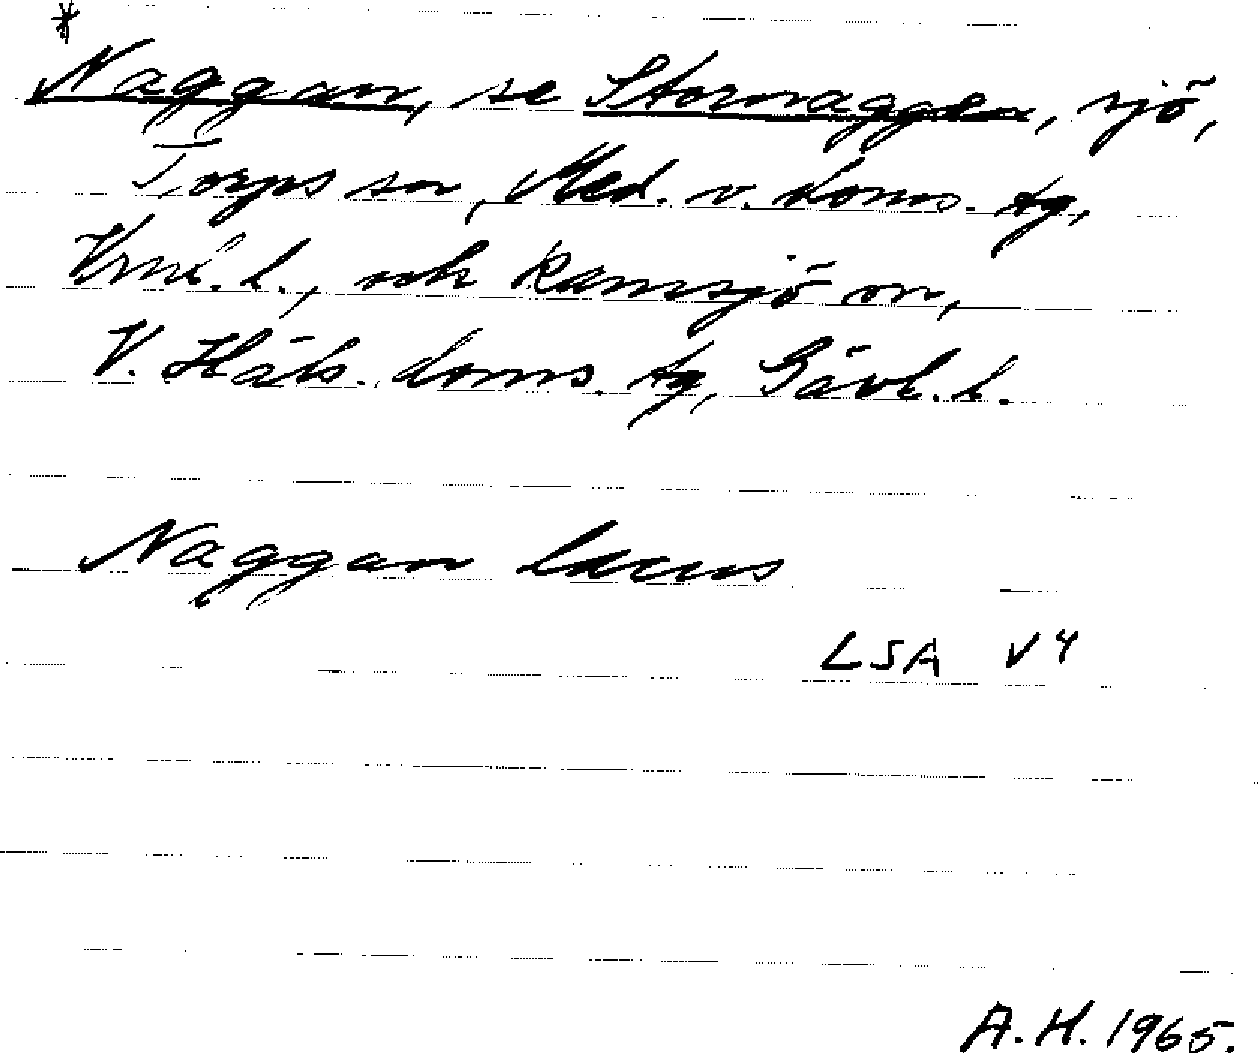 *
Naggan, se Stornaggen, sjö,
Torps sn, Med. v. doms. tg,
Vrnl. l., och Ramsjö sn,
V. Häls. doms. tg, Gävl. l.
Naggan lacus
LSA V4
A.H. 1965.